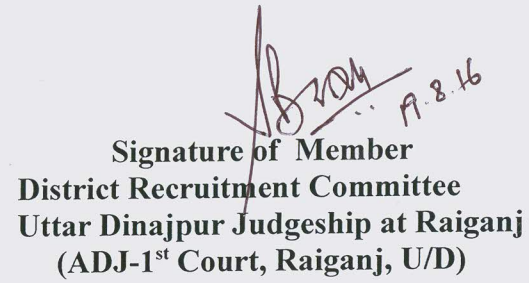 19.8.16
Signature of Member
District Recruitment Committee
Uttar Dinajpur Judgeship at Raiganj
(ADJ-1st Court, Raiganj, U/D)